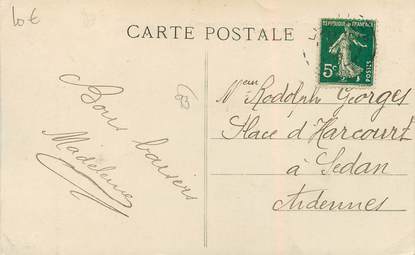 10 €
CARTE POSTALE
REPUBLIQUE FRANÇAISE
5c
POSTES
83
Bons baisers
Madeleine
Rodolph Georges
Place d'Harcourt
à Sedan
Ardennes